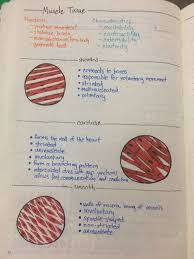 Muscle Tissue
Functions: Characteristics:
- produce movement - excitability
- stabilize body - contractility
- generate heat - elasticity
skeletal
• connects to bones
• responsible for voluntary movement
• striated
• multinucleated
• voluntary
cardiac
• forms the wall of the heart
• striated
• uninucleate
• involuntary
• form a branching pattern
• intercalated discs with gap junctions
allows fast communication and
smooth
• walls of
• involuntary
• spindle-shaped
• non-striated
• uninucleate